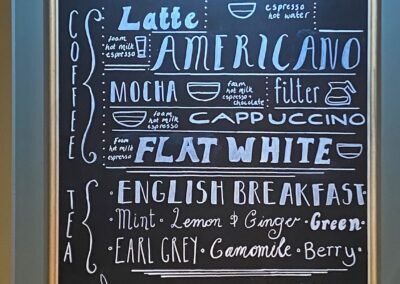 COFFEE
Latte
espresso
hot water
foam
hot milk
espresso
AMERICANO
MOCHA
foam
hot milk
espresso +
chocolate
filter
foam
hot milk
espresso
CAPPUCCINO
foam
hot milk
espresso
FLAT WHITE
TEA
ENGLISH BREAKFAST
Mint · Lemon & Ginger · Green
EARL GREY · Camomile · Berry